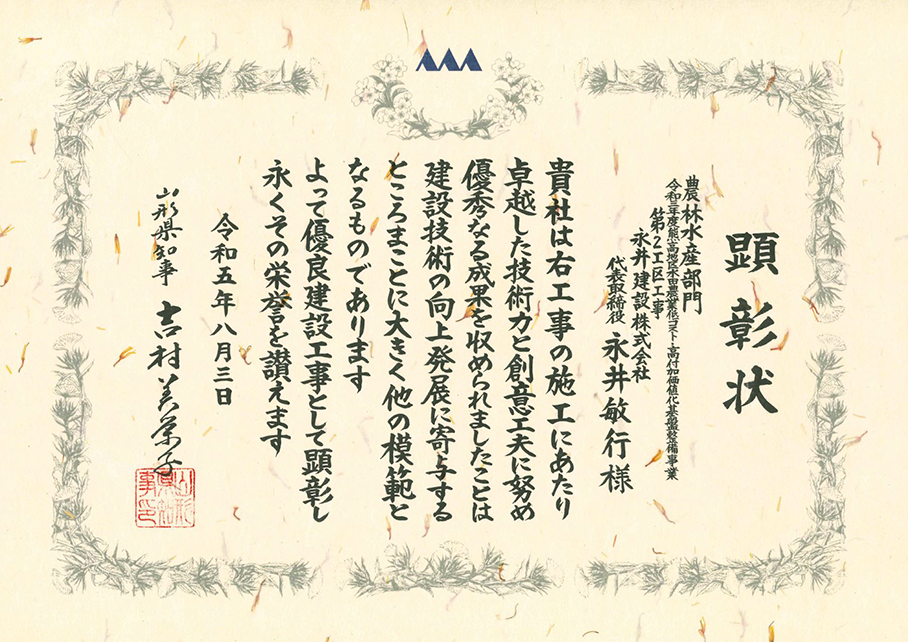 顕彰状
農林水産部門
令和三年度熊高地区水田農業低コスト・高付加価値化基盤整備事業
第2工区工事
永井建設株式会社
代表取締役 永井敏行様
貴社は右工事の施工にあたり
卓越した技術力と創意工夫に努め
優秀なる成果を収められましたことは
建設技術の向上発展に寄与する
ところまことに大きく他の模範と
なるものであります
よって優良建設工事として顕彰し
永くその栄誉を讃えます
令和五年八月三日
山形県知事 吉村美栄子
山形県知事印